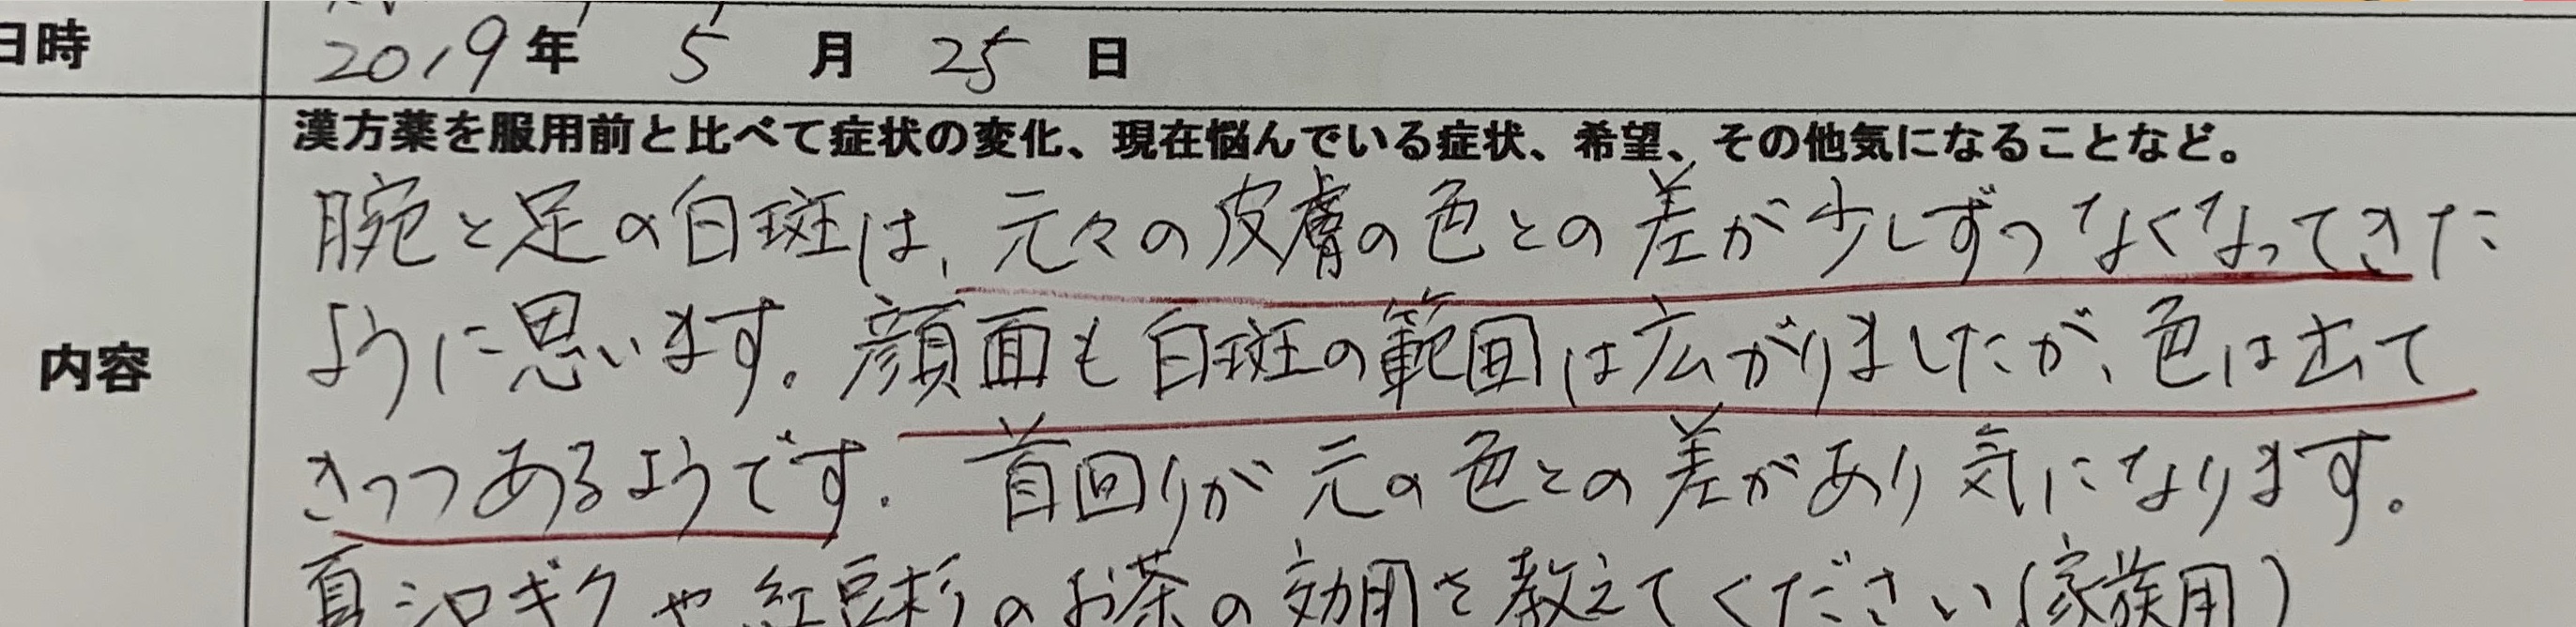 日時 2019年 5月 25日
漢方薬を服用前と比べて症状の変化、現在悩んでいる症状、希望、その他気になることなど。
腕と足の白斑は、元々の皮膚の色との差が少しずつなくなってきた
内容
ように思います。顔面も白斑の範囲は広がりましたが、色は出て
きつつあるようです。首回りが元の色との差があり気になります。
夏シロギクや紅豆杉のお茶の効用を教えてください(家族用)